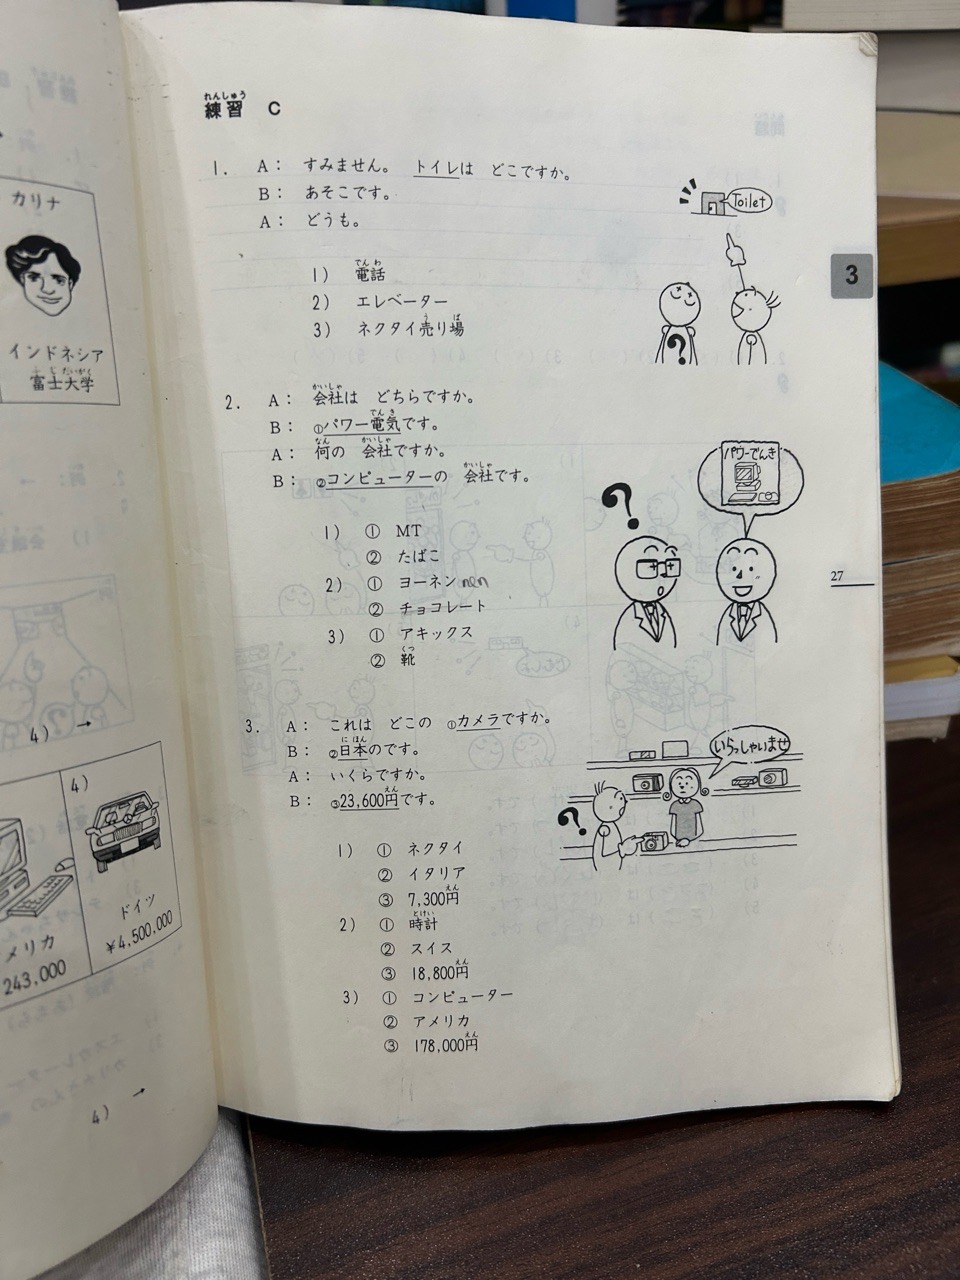 カリナ
インドネシア
ふじだいがく
富士大学
4) →
4)
メリカ
243,000
ドイツ
¥4,500,000
4) →
れんしゅう
練習 C
1. A: すみません。 トイレは どこですか。
B: あそこです。
A: どうも。
でんわ
1) 電話
2) エレベーター
う ば
3) ネクタイ売り場
Toilet
?
3
かいしゃ
2. A: 会社は どちらですか。
でんき
B: ①パワー電気です。
なん かいしゃ
A: 何の 会社ですか。
かいしゃ
B: ②コンピューターの 会社です。
1) ① MT
② たばこ
2) ① ヨーネン nen
② チョコレート
3) ① アキックス
くつ
② 靴
パワーでんき
?
27
3. A: これは どこの ①カメラですか。
にほん
B: ②日本のです。
A: いくらですか。
えん
B: ③23,600円です。
1) ① ネクタイ
② イタリア
えん
③ 7,300円
とけい
2) ① 時計
② スイス
えん
③ 18,800円
3) ① コンピューター
② アメリカ
えん
③ 178,000円
いらっしゃいませ
?